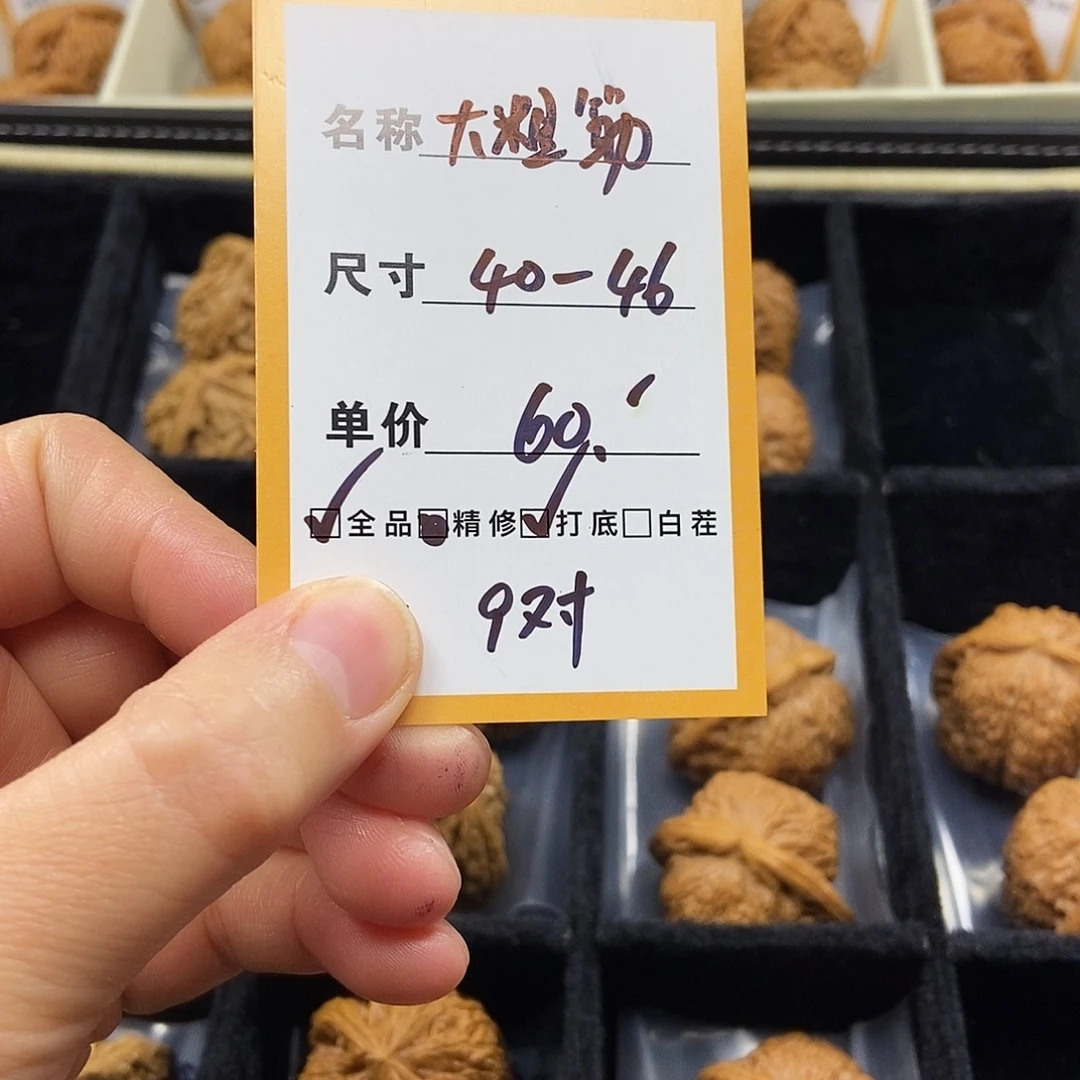 名称 大粗筋
尺寸 40-46
单价 60.
☑全品 ☑精修 ☑打底 □白茬
9对